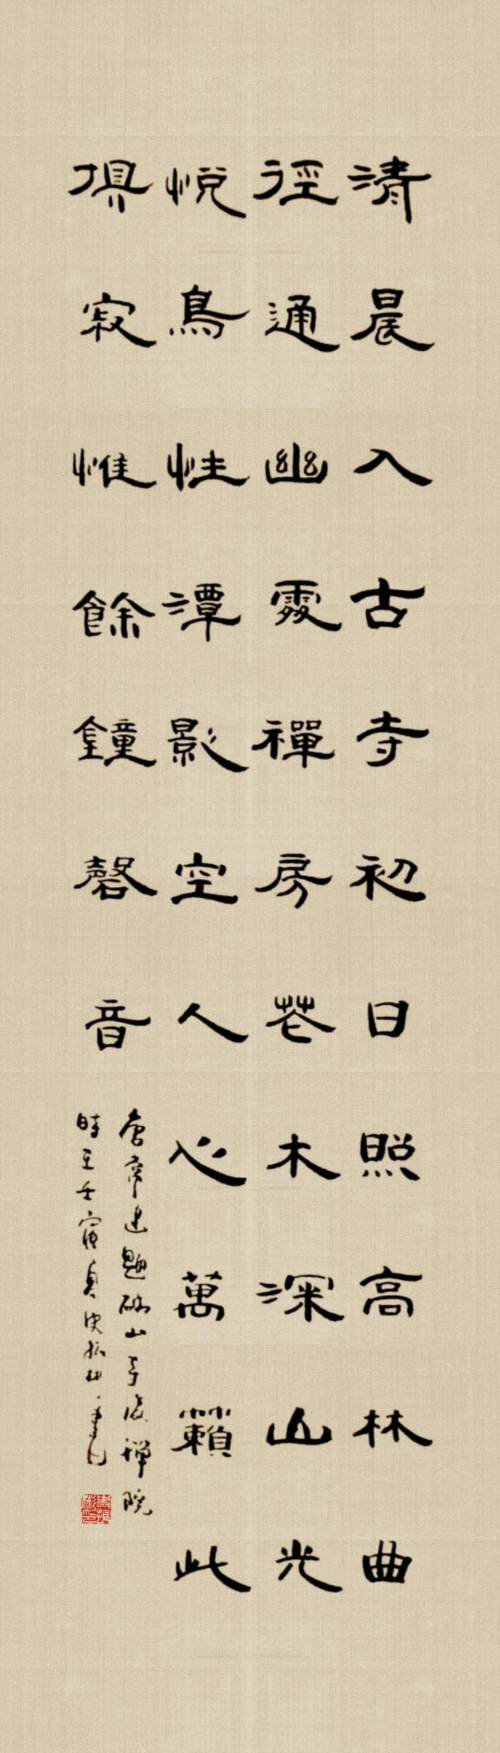 清晨入古寺初日照高林曲
徑通幽處禪房花木深山光
悅鳥性潭影空人心萬籟此
俱寂惟餘鐘磬音
唐常建題破山寺後禪院
時壬寅夏